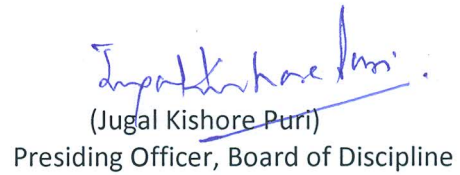 Jugal Kishore Puri.
(Jugal Kishore Puri)
Presiding Officer, Board of Discipline